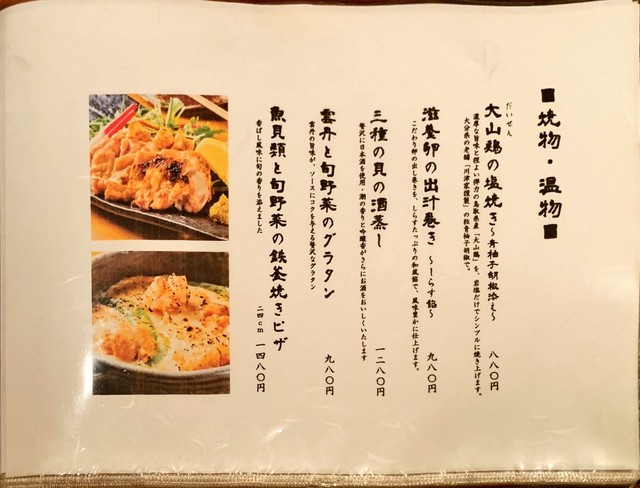 ■焼物・温物■
だいせん
大山鶏の塩焼き～青柚子胡椒添え～ 八八〇円
濃厚な旨味と程よい弾力の鳥取県産「大山鶏」を、岩塩だけでシンプルに焼き上げます。
大分県の老舗「川津家謹製」の粒青柚子胡椒で。
滋養卵の出汁巻き ～しらす餡～ 九八〇円
こだわり卵の出し巻きを、しらすたっぷりの和風餡で、風味豊かに仕上げます。
三種の貝の酒蒸し 一二八〇円
贅沢に日本酒を使用・潮の香りと吟醸香がさらにお酒をおいしくいたします
雲丹と旬野菜のグラタン 九八〇円
雲丹の旨味が、ソースにコクを与える贅沢なグラタン
魚貝類と旬野菜の鉄釜焼きピザ 二四cm 一四八〇円
香ばし風味に旬の香りを添えました